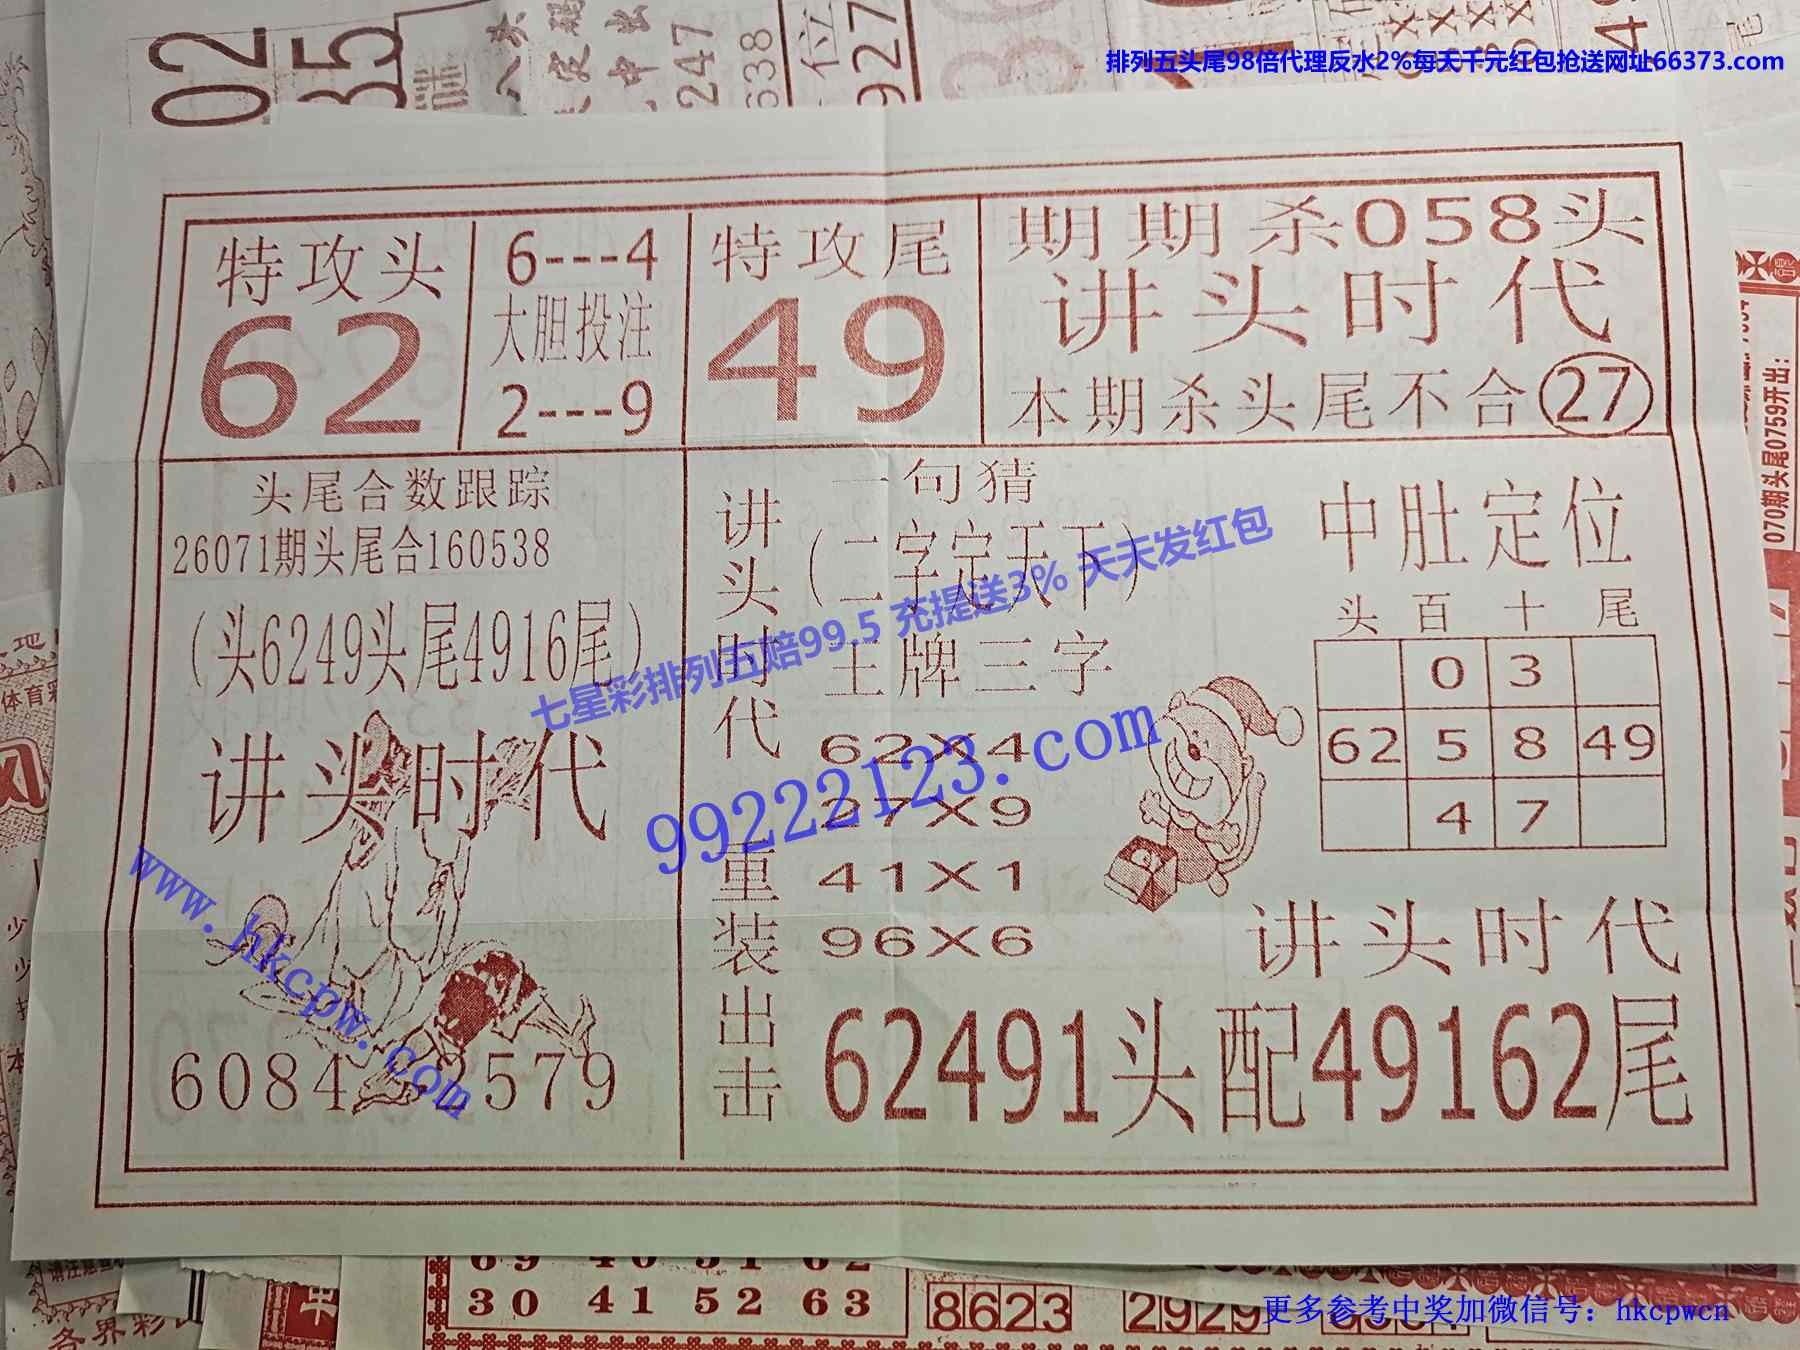 排列五头尾98倍代理反水2%每天千元红包抢送网址66373.com
02
35
247
638
927
特攻头
62
6---4
大胆投注
2---9
特攻尾
49
期期杀058头
讲头时代
本期杀头尾不合27
头尾合数跟踪
26071期头尾合160538
(头6249头尾4916尾)
讲头时代
6084 2579
讲头时代
重装出击
一句猜
(二字定天下)
王牌三字
62X4
27X9
41X1
96X6
中肚定位
头 百 十 尾
0 3
62 5 8 49
4 7
讲头时代
62491头配49162尾
七星彩排列五赔99.5 充提送3% 天天发红包
99222123.com
www.hkcpw.com
070期头尾0759开出:
69 40 51 62
30 41 52 63
8623
2929
各界彩
更多参考中奖加微信号: hkcpwcn